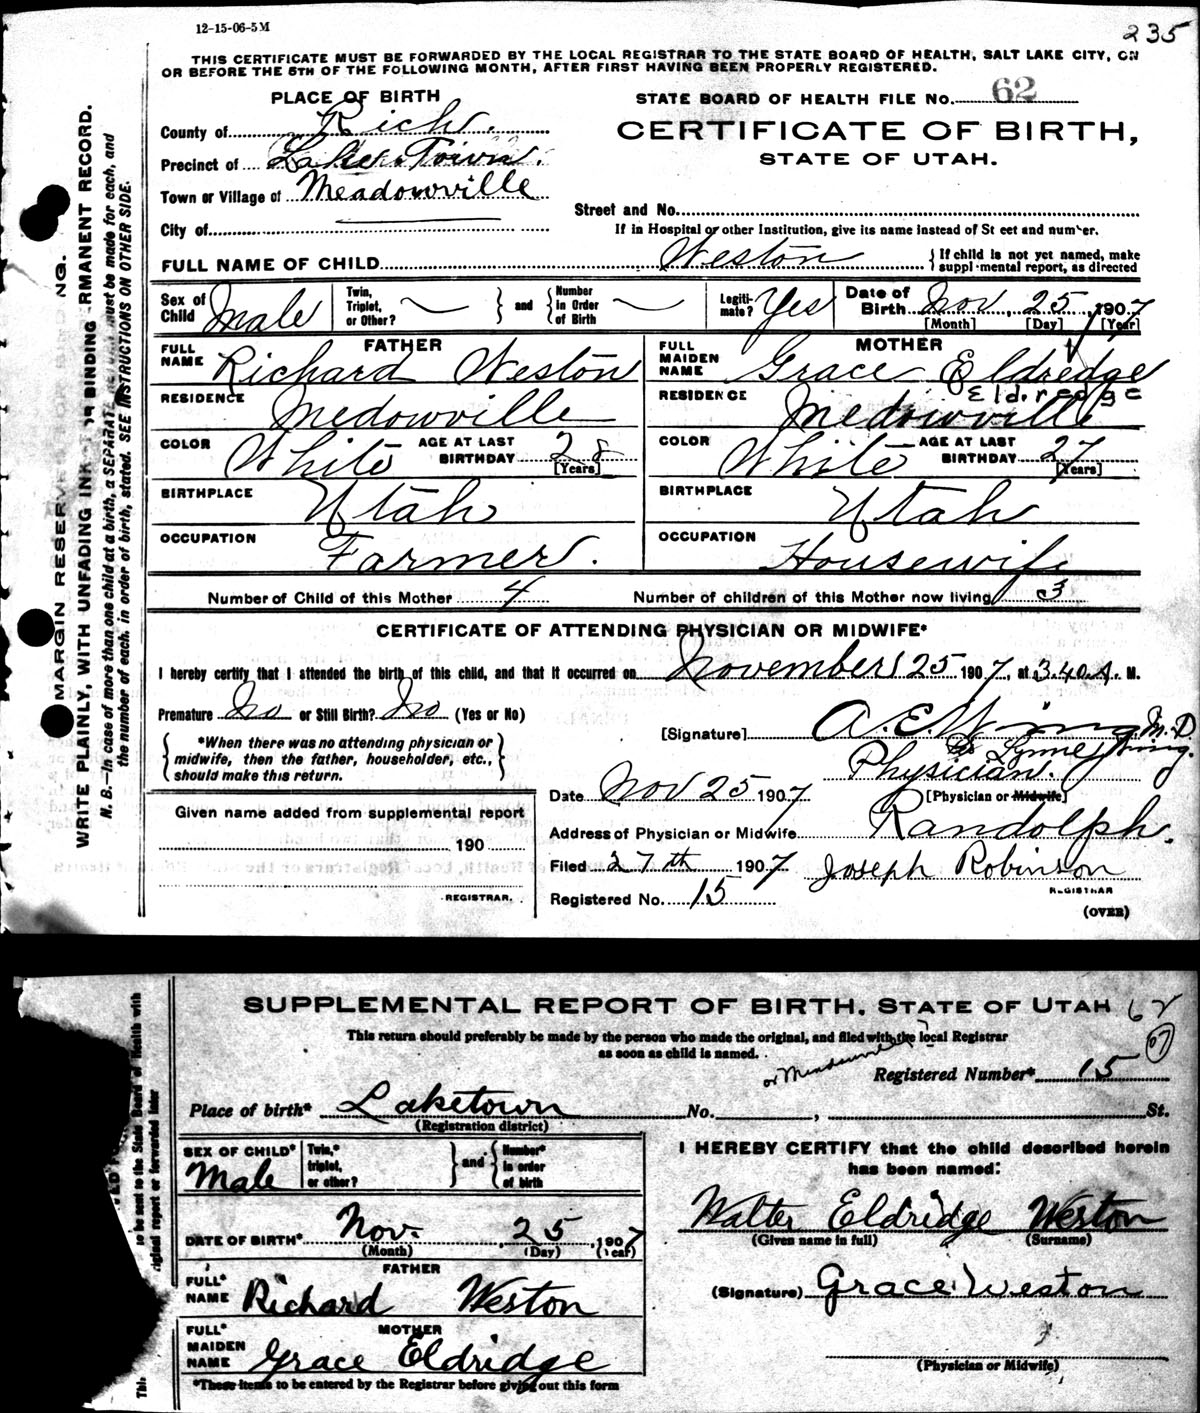 12-15-06-5M
235
THIS CERTIFICATE MUST BE FORWARDED BY THE LOCAL REGISTRAR TO THE STATE BOARD OF HEALTH, SALT LAKE CITY, ON
OR BEFORE THE 5TH OF THE FOLLOWING MONTH, AFTER FIRST HAVING BEEN PROPERLY REGISTERED.
PLACE OF BIRTH
STATE BOARD OF HEALTH FILE No. 62
County of Rich.
CERTIFICATE OF BIRTH,
Precinct of Lake Town.
STATE OF UTAH.
Town or Village of Meadowville
Street and No.
City of
If in Hospital or other Institution, give its name instead of St eet and number.
FULL NAME OF CHILD Weston
{If child is not yet named, make
suppl-mental report, as directed
Sex of Child Male
Twin, Triplet, or Other?
and
Number in Order of Birth
Legiti-mate? Yes
Date of Birth Nov 25, 1907
[Month] [Day] [Year]
FATHER
FULL NAME Richard Weston
RESIDENCE Medowville
COLOR White AGE AT LAST BIRTHDAY 28
[Years]
BIRTHPLACE Utah
OCCUPATION Farmer.
MOTHER
FULL MAIDEN NAME Grace Eldredge
Eldredge
RESIDENCE Medowville
COLOR White AGE AT LAST BIRTHDAY 27
[Years]
BIRTHPLACE Utah
OCCUPATION Housewife
Number of Child of this Mother 4
Number of children of this Mother now living 3
CERTIFICATE OF ATTENDING PHYSICIAN OR MIDWIFE*
I hereby certify that I attended the birth of this child, and that it occurred on November 25 1907, at 3.40 A. M.
Premature No or Still Birth? No (Yes or No)
[Signature] A. E. Wing M.D.
*When there was no attending physician or
midwife, then the father, householder, etc.,
should make this return.
Physician.
[Physician or Midwife]
Date Nov 25 1907
Given name added from supplemental report
190
REGISTRAR.
Address of Physician or Midwife Randolph.
Filed 27th 1907 Joseph Robinson
REGISTRAR
Registered No. 15
(OVER)
MARGIN RESERVE NG.
WRITE PLAINLY, WITH UNFADING INK RMANENT RECORD.
N. B.—In case of more than one child at a birth, a SEPARATE must be made for each, and
the number of each, in order of birth, stated. SEE INSTRUCTIONS ON OTHER SIDE.
SUPPLEMENTAL REPORT OF BIRTH, STATE OF UTAH 62
07
This return should preferably be made by the person who made the original, and filed with the local Registrar
as soon as child is named.
or Meadowville
Registered Number* 15
Place of birth* Laketown No. , St.
(Registration district)
SEX OF CHILD* Male
Twin,* triplet, or other?
and
Number* in order of birth
DATE OF BIRTH* Nov. 25, 1907
(Month) (Day) (Year)
FATHER
FULL* NAME Richard Weston
MOTHER
FULL* MAIDEN NAME Grace Eldridge
*These items to be entered by the Registrar before giving out this form
I HEREBY CERTIFY that the child described herein
has been named:
Walter Eldridge Weston
(Given name in full) (Surname)
(Signature) Grace Weston
(Physician or Midwife)
to be sent to the State Board of Health with
riginal report or forwarded later
This